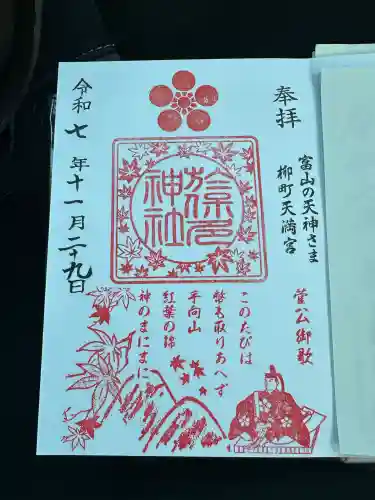 奉拝
富山の天神さま
柳町天満宮
菅公御歌
このたびは
幣も取りあへず
手向山
紅葉の錦
神のまにまに
於保多
神社
令和七年十一月二十九日